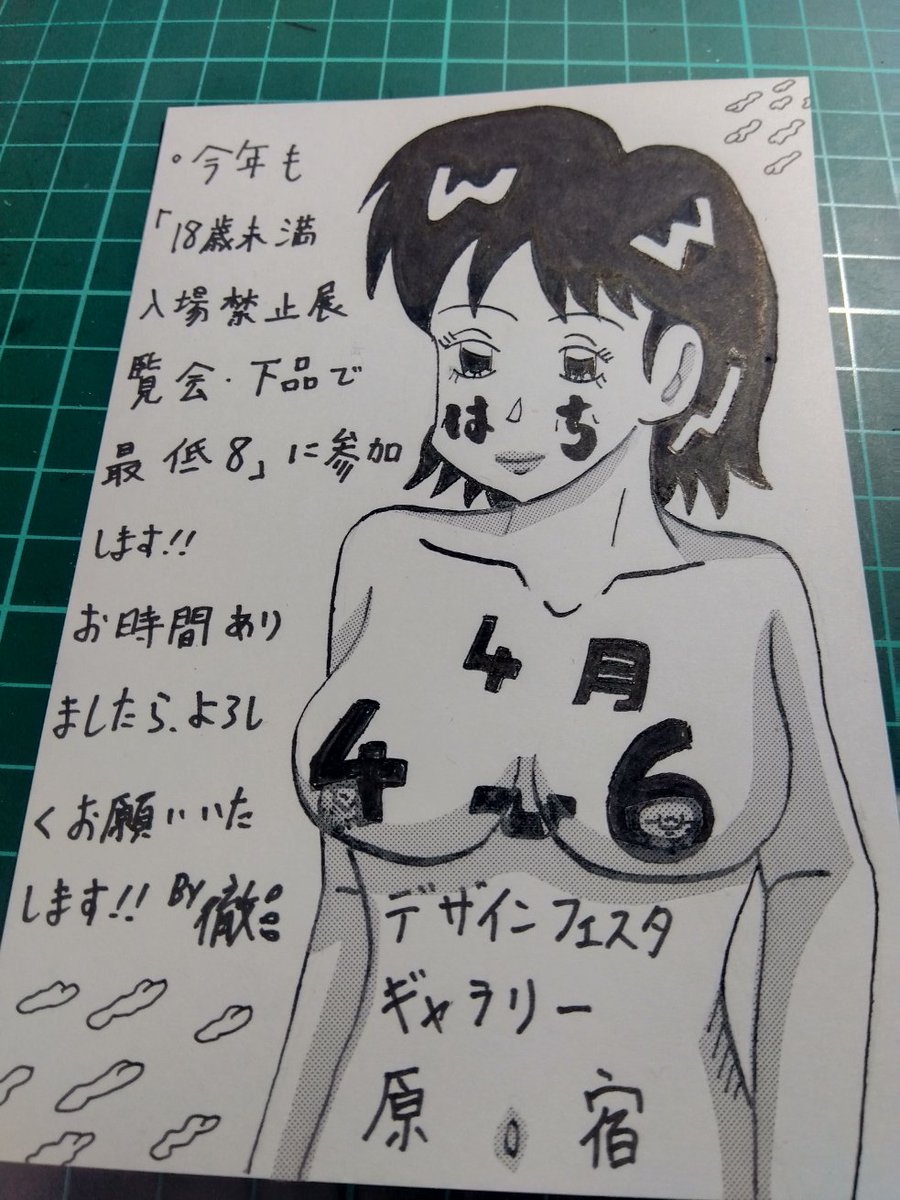 。今年も
「18歳未満
入場禁止展
覧会・下品で
最低8」に参加
します!!
お時間あり
ましたら、よろし
くお願いいた
します!! BY徹
W W
W
はち
4月
4-6
デザインフェスタ
ギャラリー
原宿